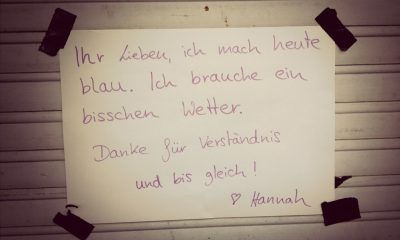 Ihr Lieben, ich mach heute
blau. Ich brauche ein
bisschen Wetter.
Danke für Verständnis
und bis gleich!
♡ Hannah